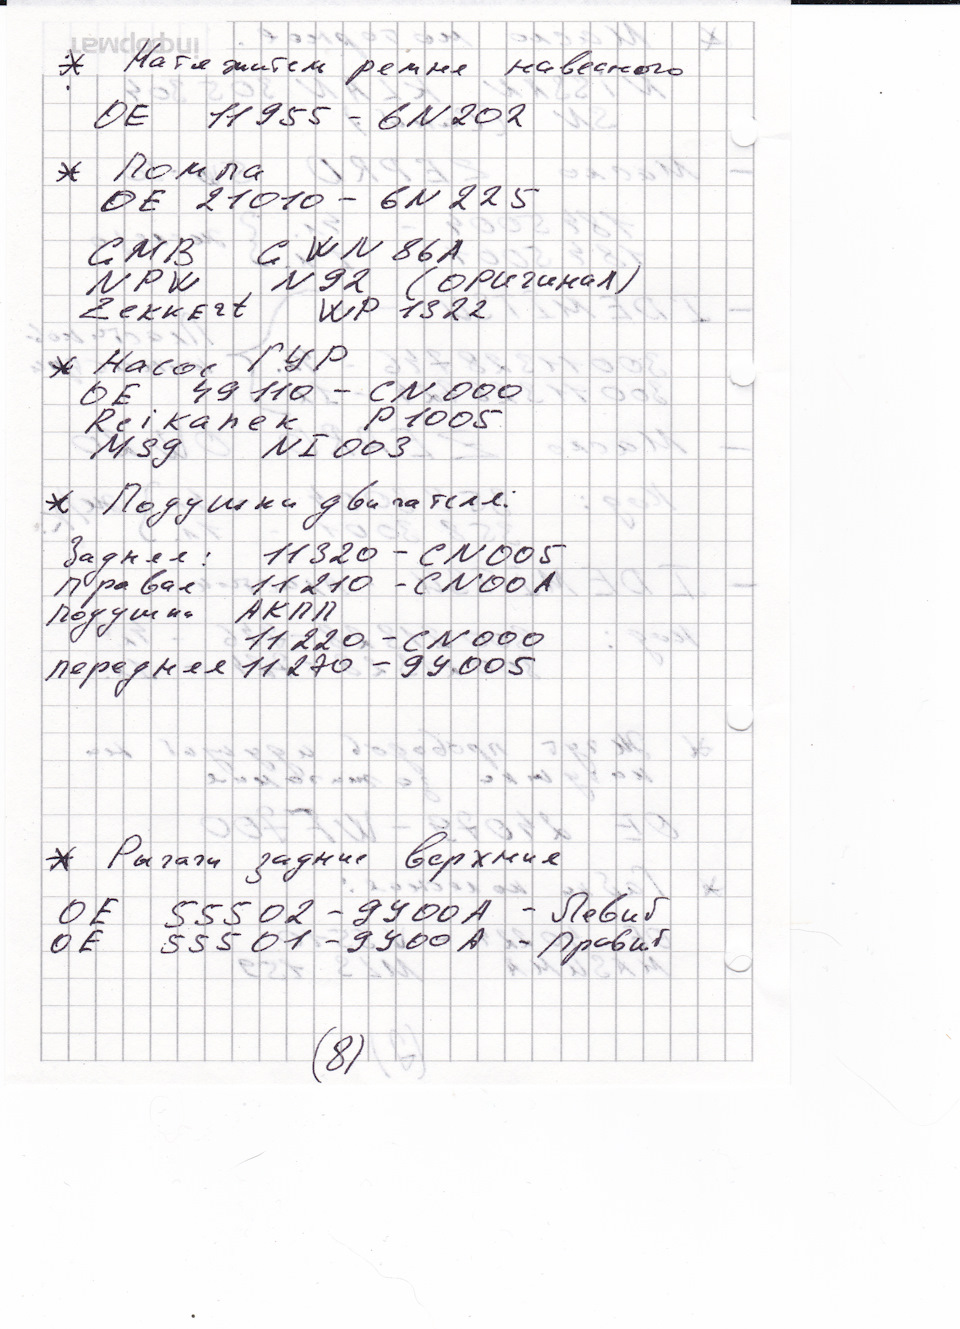 * Натяжитель ремня навесного
OE 11955-6N202
* Помпа
OE 21010-6N225
GMB GWN86A
NPW N92 (ОРИГИНАЛ)
ZEKKERt WP 1322
* Насос ГУР
OE 49110-CN000
Reikanek P1005
MSg NI003
* Подушки двигателя:
Задняя: 11320-CN005
правая 11210-CN00A
подушка АКПП
11220-CN000
передняя 11270-9Y005
* Рычаги задние верхние
OE 55502-9Y00A - Левый
OE 55501-9Y00A - Правый
(8)